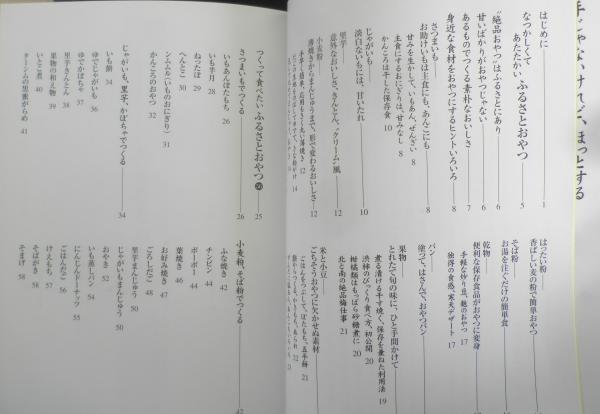 手じゃないけれど、ほっとする
はじめに 1
なつかしくて
あたたかい ふるさとおやつ 5
“絶品おやつ”はふるさとにあり 6
甘いばかりがおやつじゃない 6
あるものでつくる素朴なおいしさ 7
身近な食材をおやつにするヒントいろいろ 8
さつまいも 8
お助けいもは主食にも、あんこにも
甘みを生かして、いもあん、ぜんざい 8
主食にするおにぎりは、甘みなし 8
かんころは干した保存食 10
じゃがいも 10
淡白ないもには、甘いたれ
里芋 12
意外なおいしさ、きんとん、“クリーム”風
小麦粉 12
薄焼きからまんじゅうまで、形で変わるおいしさ 12
はったい粉
香ばしい麦の粉で簡単おやつ
そば粉
お湯を注ぐだけの簡単食
乾物
便利な保存食品がおやつに変身 17
手軽な炒り豆、麩のおやつ 17
独得の食感、寒天デザート 17
パン
塗って、はさんで、おやつパン
果物
とれたて旬の味に、ひと手間かけて
煮る漬ける干す焼く、保存を兼ねた利用法 19
渋柿のびっくり食べ方、初公開 20
柑橘類はもっぱら砂糖煮に 20
北と南の絶品梅仕事 21
米と小豆
ごちそうおやつに欠かせぬ素材 21
つくって食べたい ふるさとおやつ56 25
さつまいもでつくる 26
いもあんぼたもち 26
いも芋月 28
ねったぼ 29
へんとこ 30
シムムル(いものおにぎり) 31
かんころのおやつ 32
じゃがいも、里芋、かぼちゃでつくる 34
いも餅 34
ゆでじゃがいも 36
ゆでかぼちゃ 37
里芋きんとん 38
果物の和え物 39
いとこ煮 40
ターンムの黒蜜がらめ 41
小麦粉、そば粉でつくる 42
ふな焼き 42
チンビン 44
ポーポー 44
葉焼き 46
お好み焼き 47
ごろしだご 48
里芋まんじゅう 50
じゃがいもまんじゅう 50
おやき 52
いも蒸しパン 54
にんじんドーナッツ 55
ごはんだご 56
けえもち 57
そばがき 58
そまげ 58